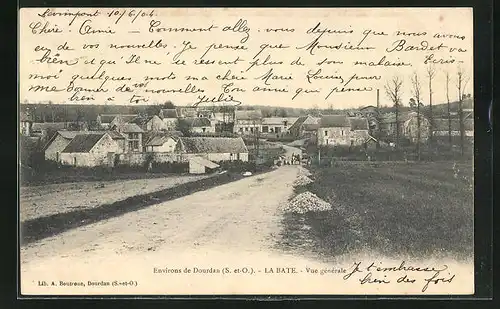 Sevimpont 10/6/04
Chère Amie — Comment allez-vous depuis que nous avons
eu de vos nouvelles, Je pensée que Monsieur Bardet va
bien et qu'il ne se ressent plus de son malaise, Ecris
moi quelques mots ma chère Marie Lucie pour
me donner de vos nouvelles Ton amie qui pense
bien à toi Julie
Environs de Dourdan (S. et-O.). - LA BATE. - Vue générale
Je t'embrasse
bien des fois
Lib. A. Boutroux, Dourdan (S.-et-O.)